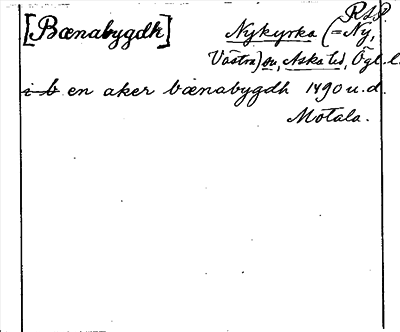 RSP.
[Bænabygdh] Nykyrka (=Ny,
Västra) sn, Aska hd, Ögl. l.
i b en aker bænabygdh 1490 u. d.
Motala.